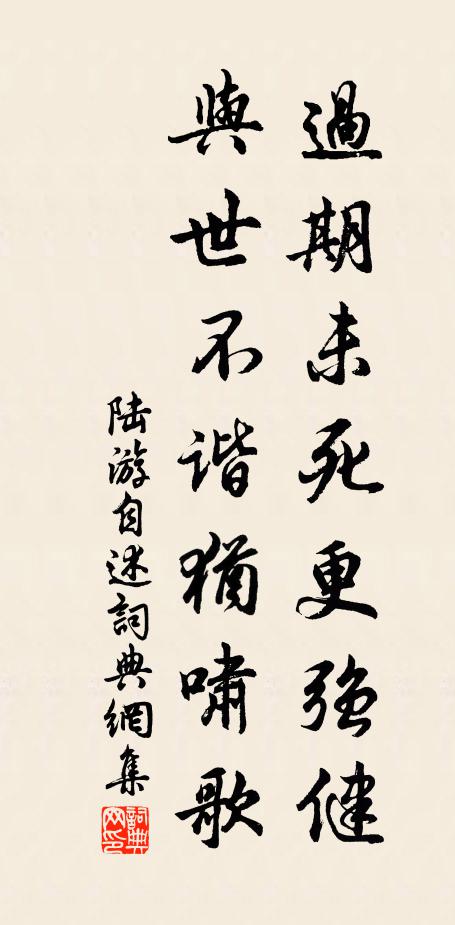 過期未死更強健
與世不谐猶嘯歌
陆游自述詞典網集
詞典
网印